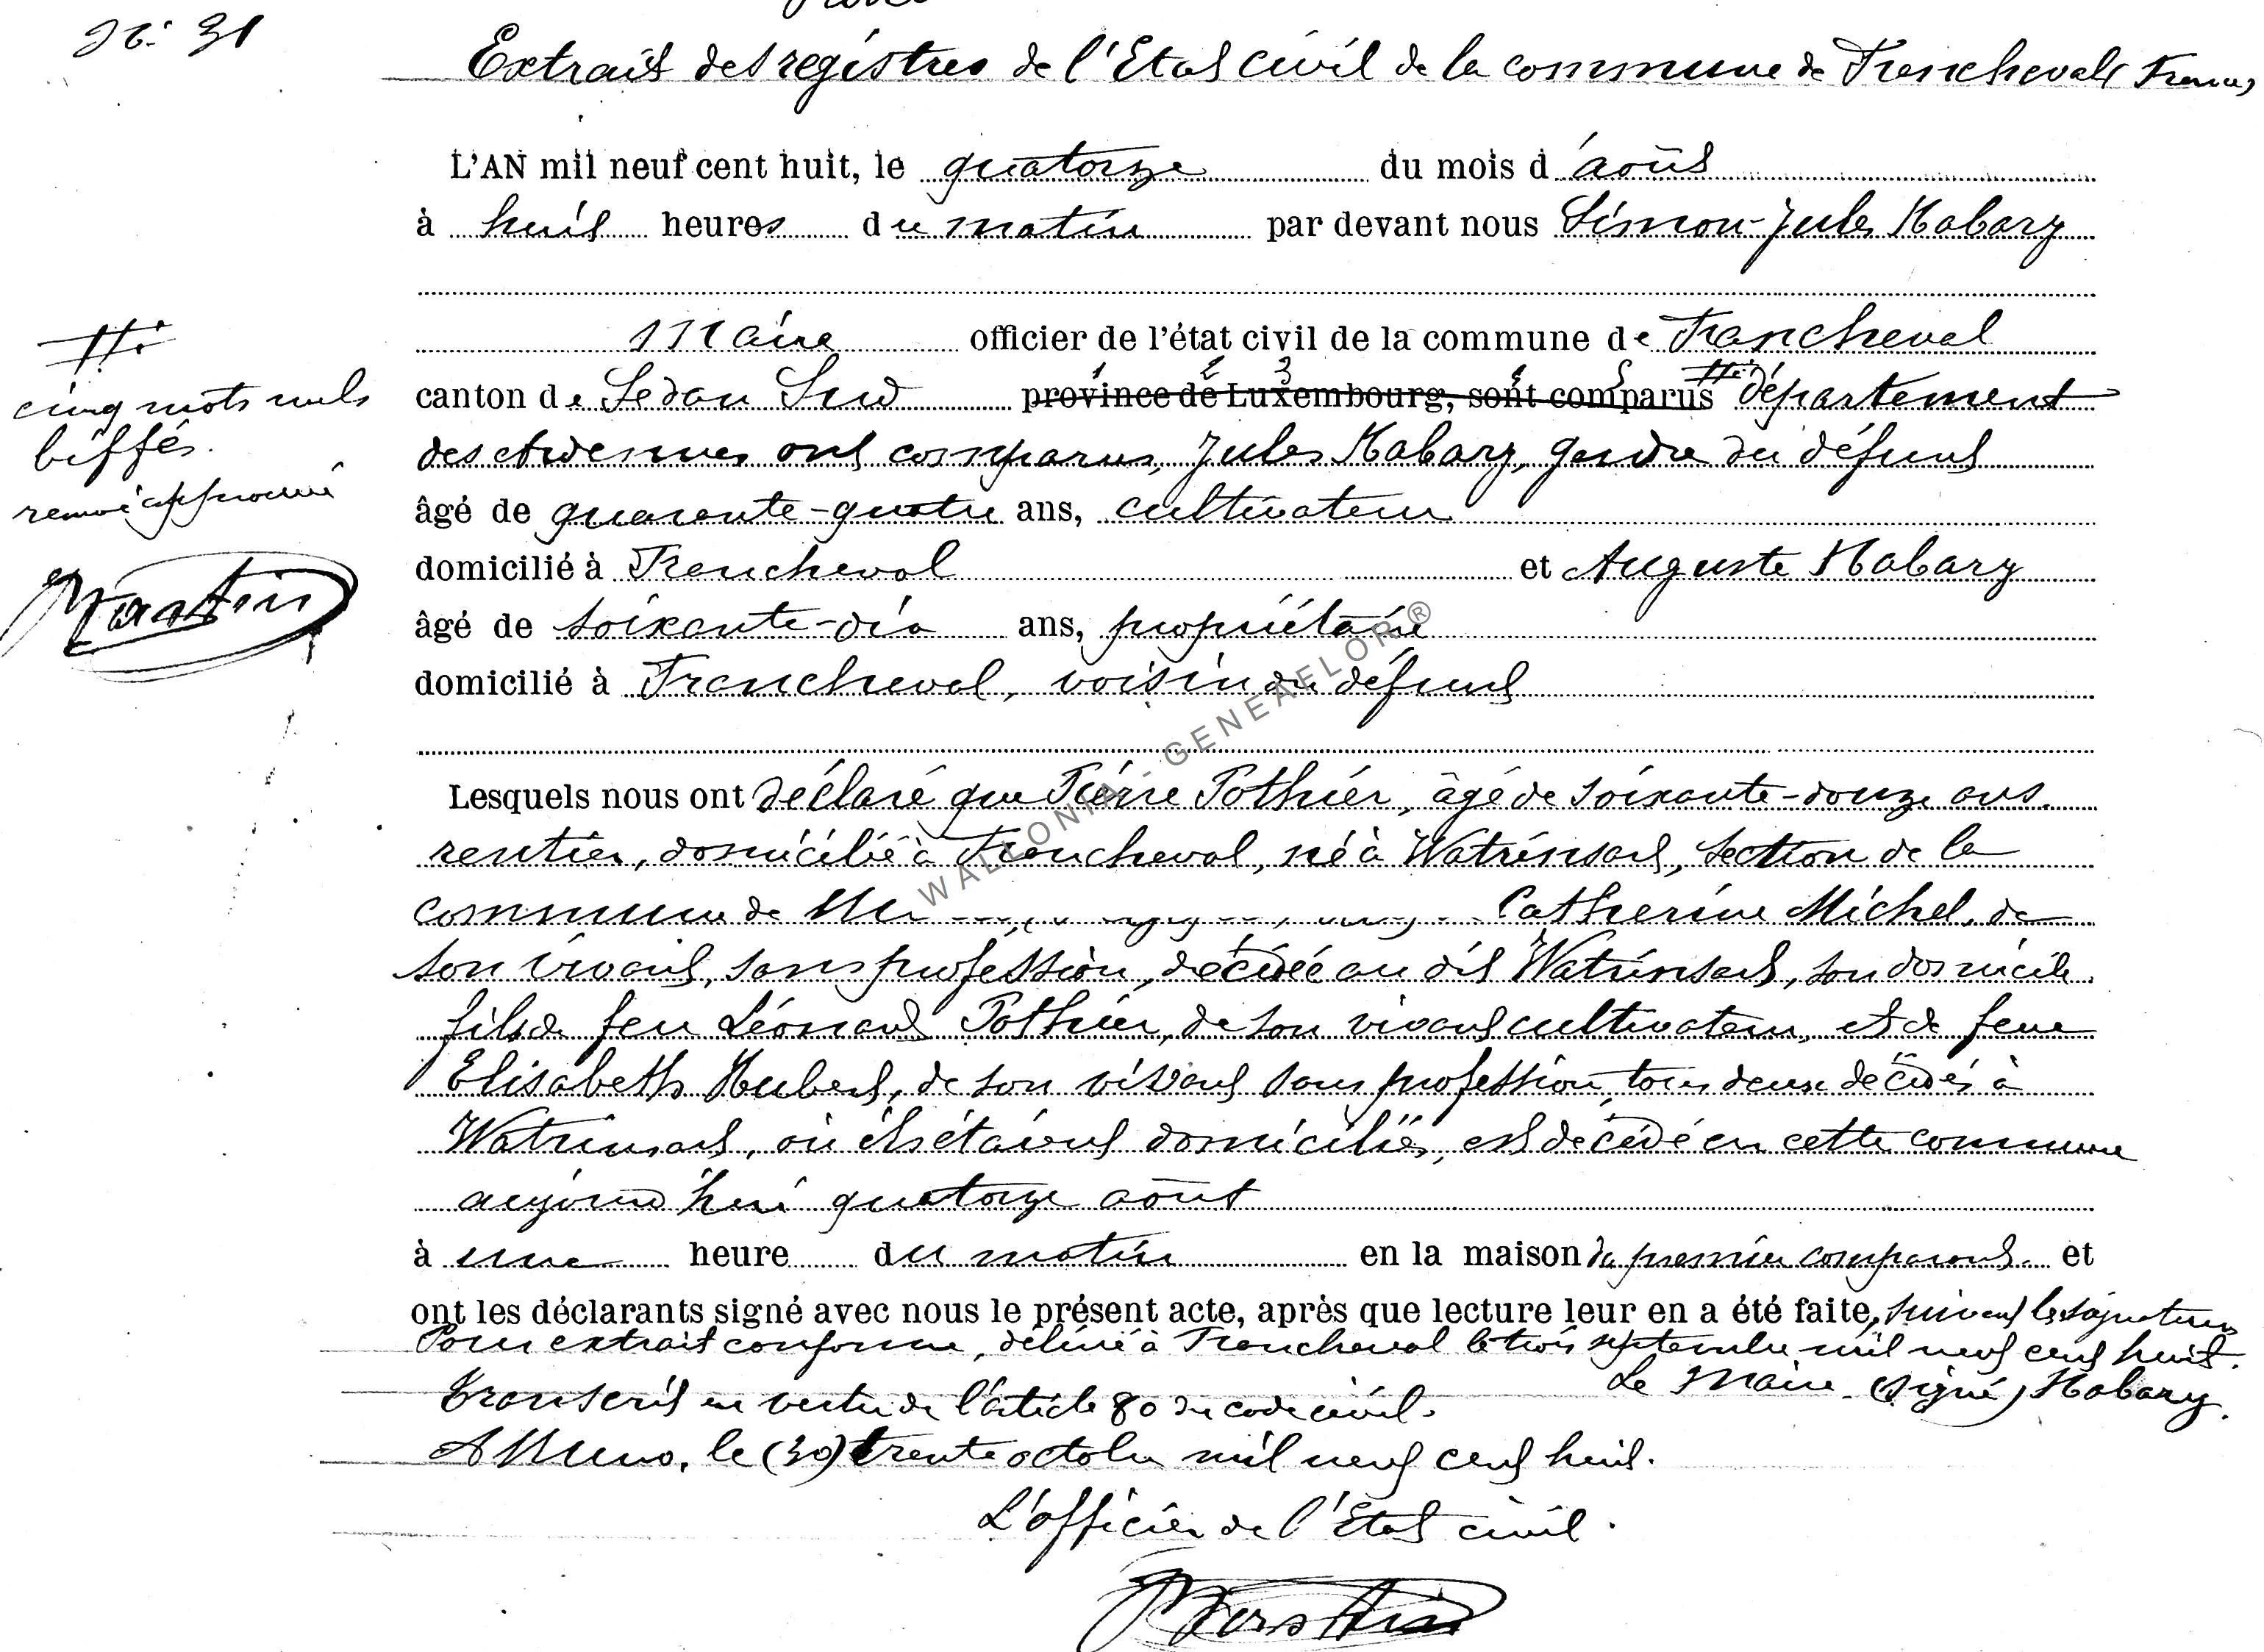 N° 31
Extrait des registres de l'Etat civil de la commune de Francheval (France)
L'AN mil neuf cent huit, le quatorze du mois d'août
à huit heures du matin par devant nous Simon-Jules Habary
maire officier de l'état civil de la commune de Francheval
canton de Sedan Sud province de Luxembourg, sont comparus département
des Ardennes ont comparus, Jules Habary, gendre du défunt
âgé de quarante-quatre ans, cultivateur
domicilié à Francheval et Auguste Habary
âgé de soixante-dix ans, propriétaire
domicilié à Francheval, voisin du défunt
cinq mots nuls
biffés.
renvoi approuvé
Lesquels nous ont déclaré que Pierre Pothier, âgé de soixante-douze ans
rentier, domicilié à Francheval, né à Watrinsart, section de la
commune de Mu Catherine Michel, de
son vivant, sans profession, décédée au dit Watrinsart, son domicile
fils de feu Léonard Pothier, de son vivant cultivateur, et de feue
Elisabeth Hubert, de son vivant sans profession, tous deux décédés à
Watrinsart, où ils étaient domiciliés, est décédé en cette commune
aujourd'hui quatorze août
à une heure du matin en la maison du premier comparant et
ont les déclarants signé avec nous le présent acte, après que lecture leur en a été faite, suivent les signatures
Pour extrait conforme, délivré à Francheval le trois septembre mil neuf cent huit.
Le Maire (signé) Habary.
Transcrit en vertu de l'article 80 du code civil.
A Muno, le (30) trente octobre mil neuf cent huit.
L'officier de l'Etat civil.
WALLONIA - GENEAFLOR ®